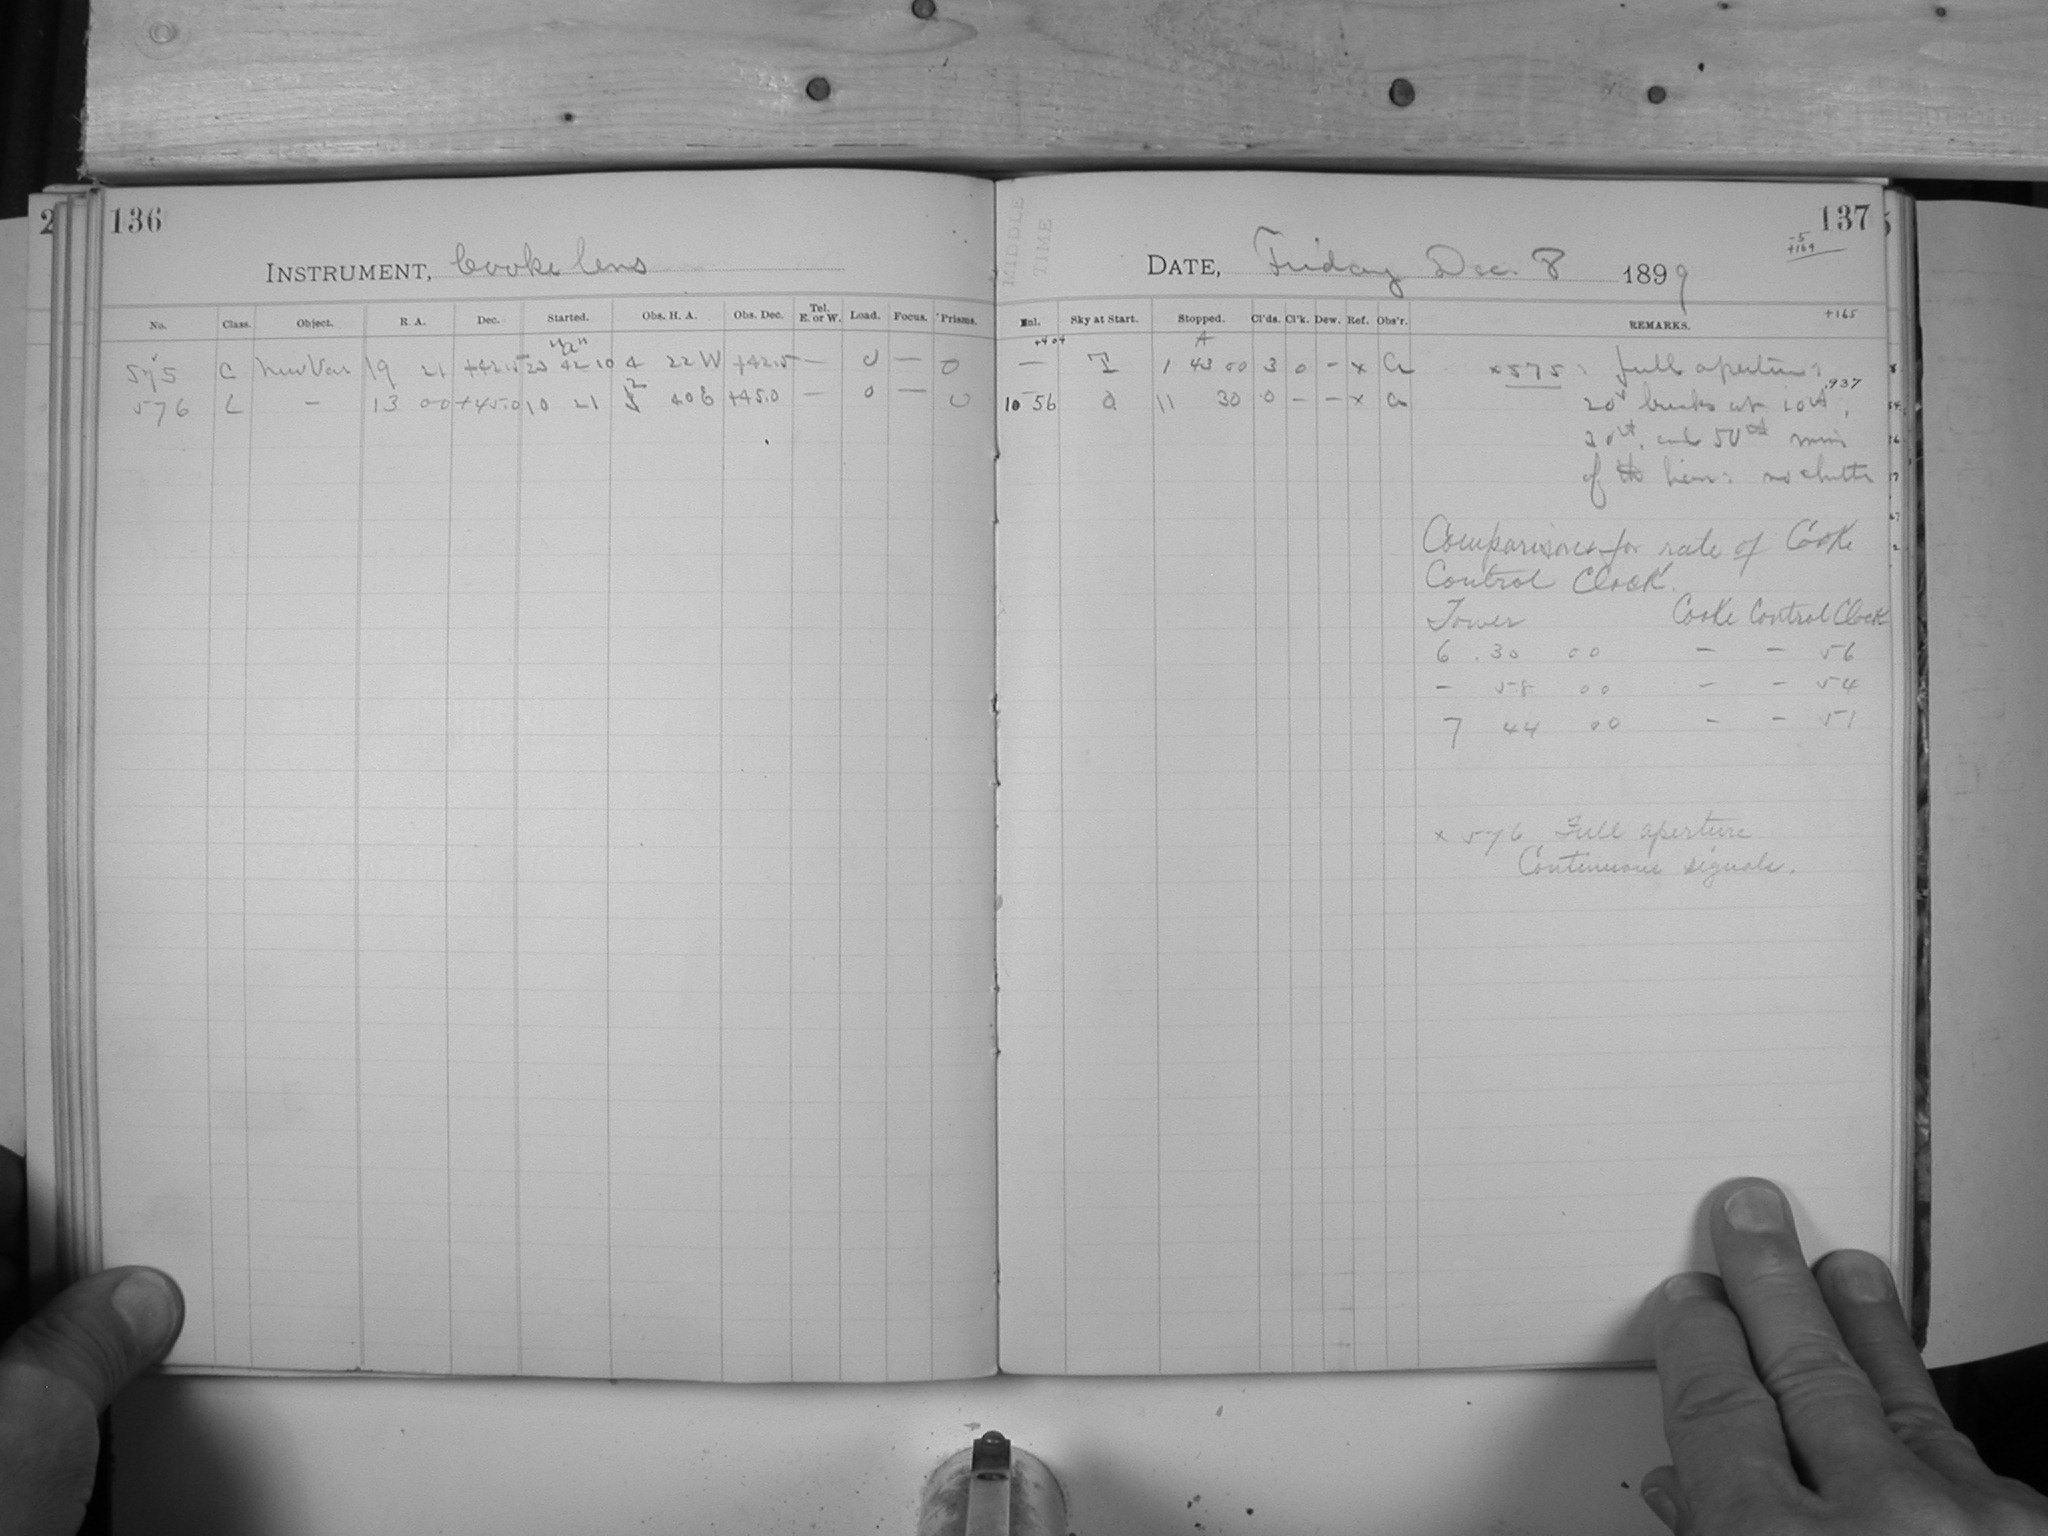 136
INSTRUMENT, Cooke lens
No. Class. Object. R A. Dec. Started. Obs. H. A. Obs. Dec. Tel. E. or W. Load. Focus. Prisms.
575 C New Var 19 21 +42.5 23 42 10 4 22 W +42.5 — 0 — 0
576 C — 13 00 +45.0 10 21 2 40 E +45.0 — 0 — 0
MIDDLE
TIME
137
-5
+169
DATE, Friday Dec. 8 1899
Sky at Start. Stopped. Cl'ds. Cl'k. Dew. Ref. Obs'r. REMARKS.
+165
+404
— 1 43 00 3 0 - x
x 575: full aperture:
10 56 11 30 0 — — x
.937
20s breaks at 10th,
30th, and 50th min
of the hour:
Comparisons for rate of Cooke
Control Clock.
Tower Cooke Control Clock
6 .30 00 — — 56
— 58 00 — — 54
7 44 00 — — 51
x 576 Full aperture
Continuous signals.